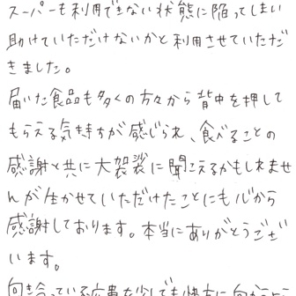 スーパーも利用できない状態に陥ってしまい
助けていただけないかと利用させていただ
きました。
届いた食品も多くの方々から背中を押して
もらえる気持ちが感じられ、食べることの
感謝と共に大袈裟に聞こえるかもしれませ
んが生かせていただけたことにも心から
感謝しております。本当にありがとうござ
います。
向き合っている
少しでも快方に向かうよう